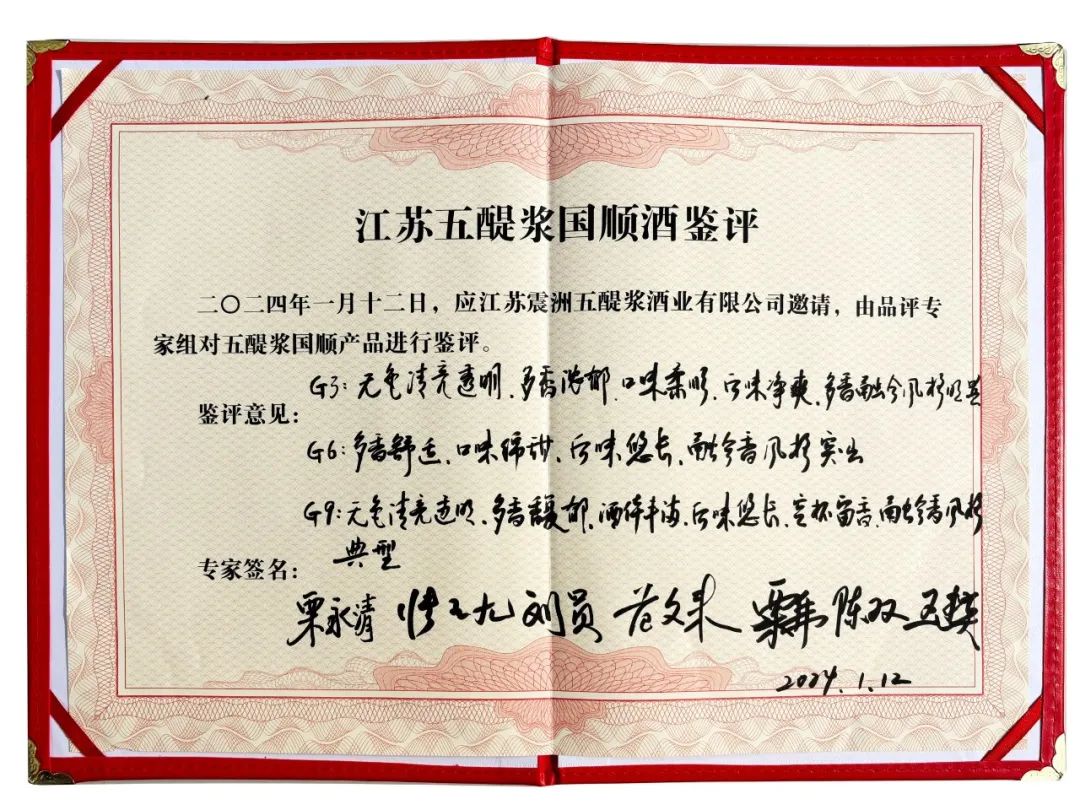 江苏五醍浆国顺酒鉴评
二〇二四年一月十二日，应江苏震洲五醍浆酒业有限公司邀请，由品评专
家组对五醍浆国顺产品进行鉴评。
G3：无色清亮透明、多香浓郁、口味柔顺、后味净爽、多香融合风格明显
鉴评意见：
G6：多香舒适、口味绵甜、后味悠长、融合香风格突出
G9：无色清亮透明、多香馥郁、酒体丰满、后味悠长、空杯留香、融合香风格
典型
专家签名：
栗永清 刘员 范文来 陈双
2024.1.12